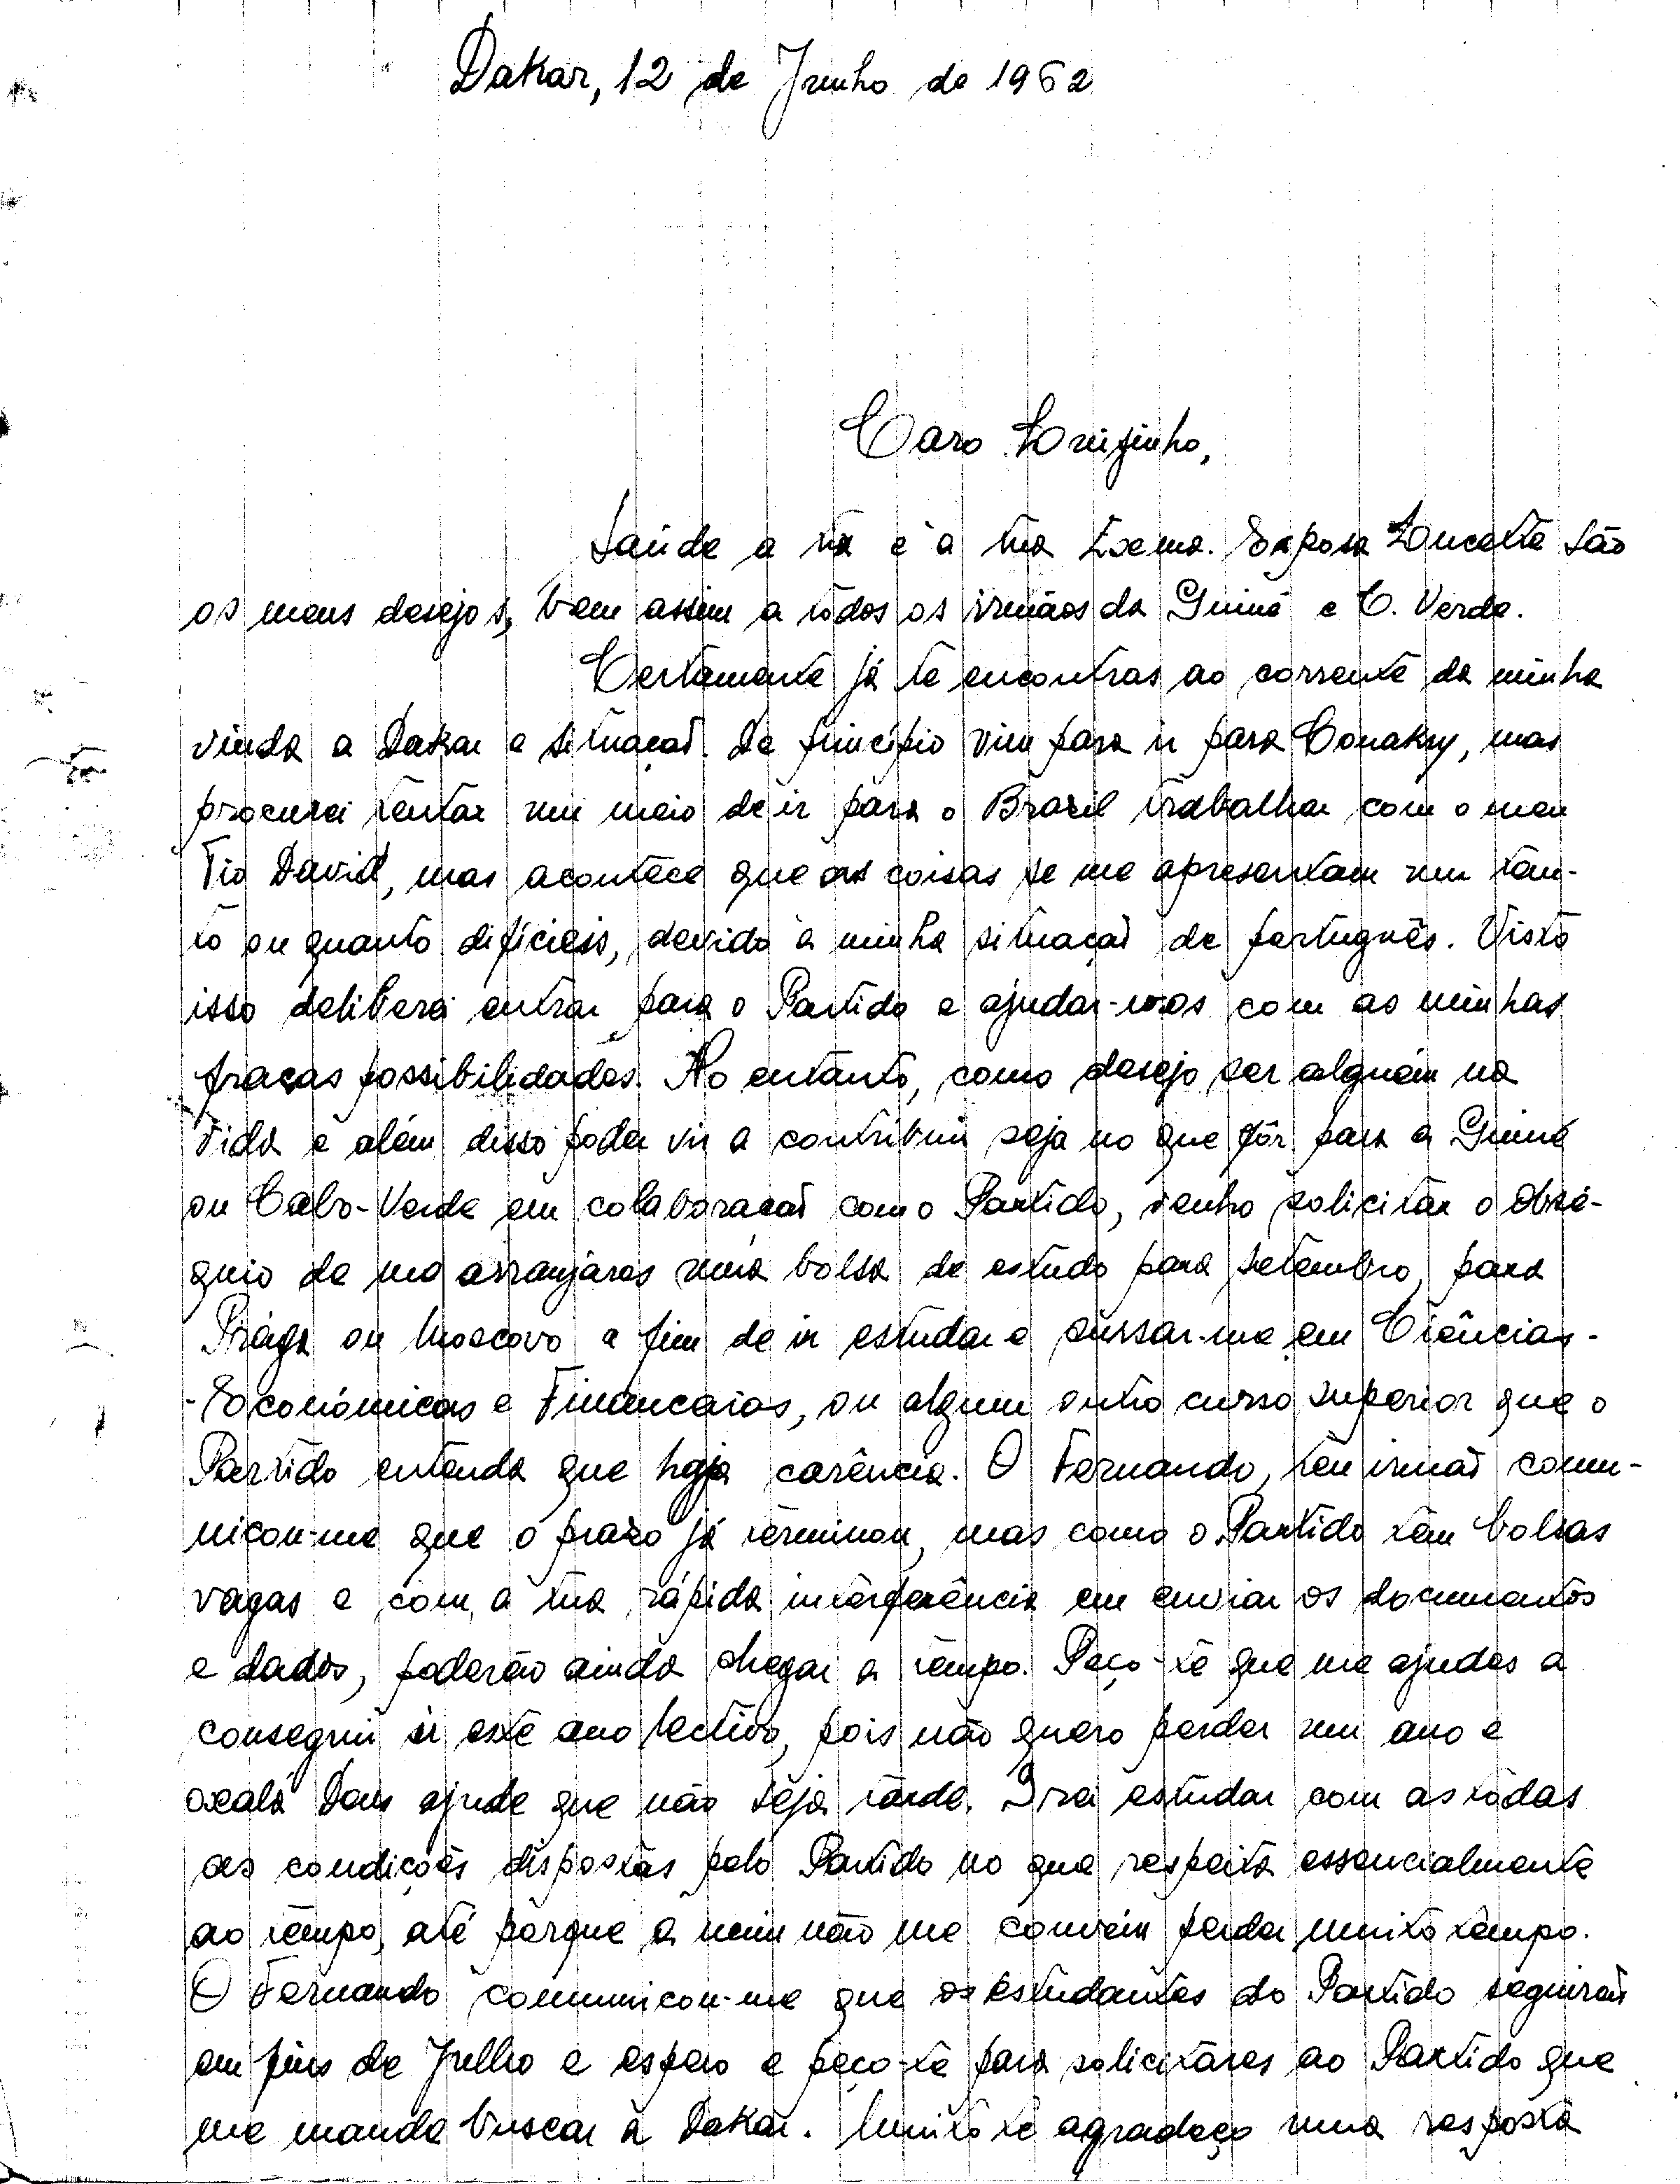 Dakar, 12 de Junho de 1962
Caro Luizinho,
Saúde a ti e à tua Exema. Esposa Lucette são
os meus desejos, bem assim a todos os irmãos da Guiné e C. Verde.
Certamente já te encontras ao corrente da minha
vinda a Dakar e situação. De princípio vim para ir para Conakry, mas
procurei tentar um meio de ir para o Brasil trabalhar com o meu
Tio David, mas acontece que as coisas se me apresentam um tan-
to ou quanto difíceis, devido à minha situação de português. Visto
isso deliberei entrar para o Partido e ajudar-vos com as minhas
fracas possibilidades. No entanto, como desejo ser alguém na
vida e além disso poder vir a contribuir seja no que fôr para a Guiné
ou Cabo-Verde em colaboração com o Partido, venho solicitar o obsé-
quio de me arranjares uma bolsa de estudo para Setembro, para
Praga ou Moscovo a fim de ir estudar e cursar-me em Ciências-
-Económicas e Financeiras, ou algum outro curso superior que o
Partido entenda que haja carência. O Fernando, teu irmão comu-
nicou-me que o prazo já terminou, mas como o Partido têm bolsas
vagas e com a tua rápida interferência em enviar os documentos
e dados, poderão ainda chegar a tempo. Peço-te que me ajudes a
conseguir ir este ano lectivo, pois não quero perder um ano e
oxalá Deus ajude que não seja tarde. Irei estudar com as todas
as condições dispostas pelo Partido no que respeita essencialmente
ao tempo, até porque a mim não me convém perder muito tempo.
O Fernando comunicou-me que os estudantes do Partido seguirão
em fins de Julho e espero e peço-te para solicitares ao Partido que
me mande buscar a Dakar. Muito te agradeço uma resposta